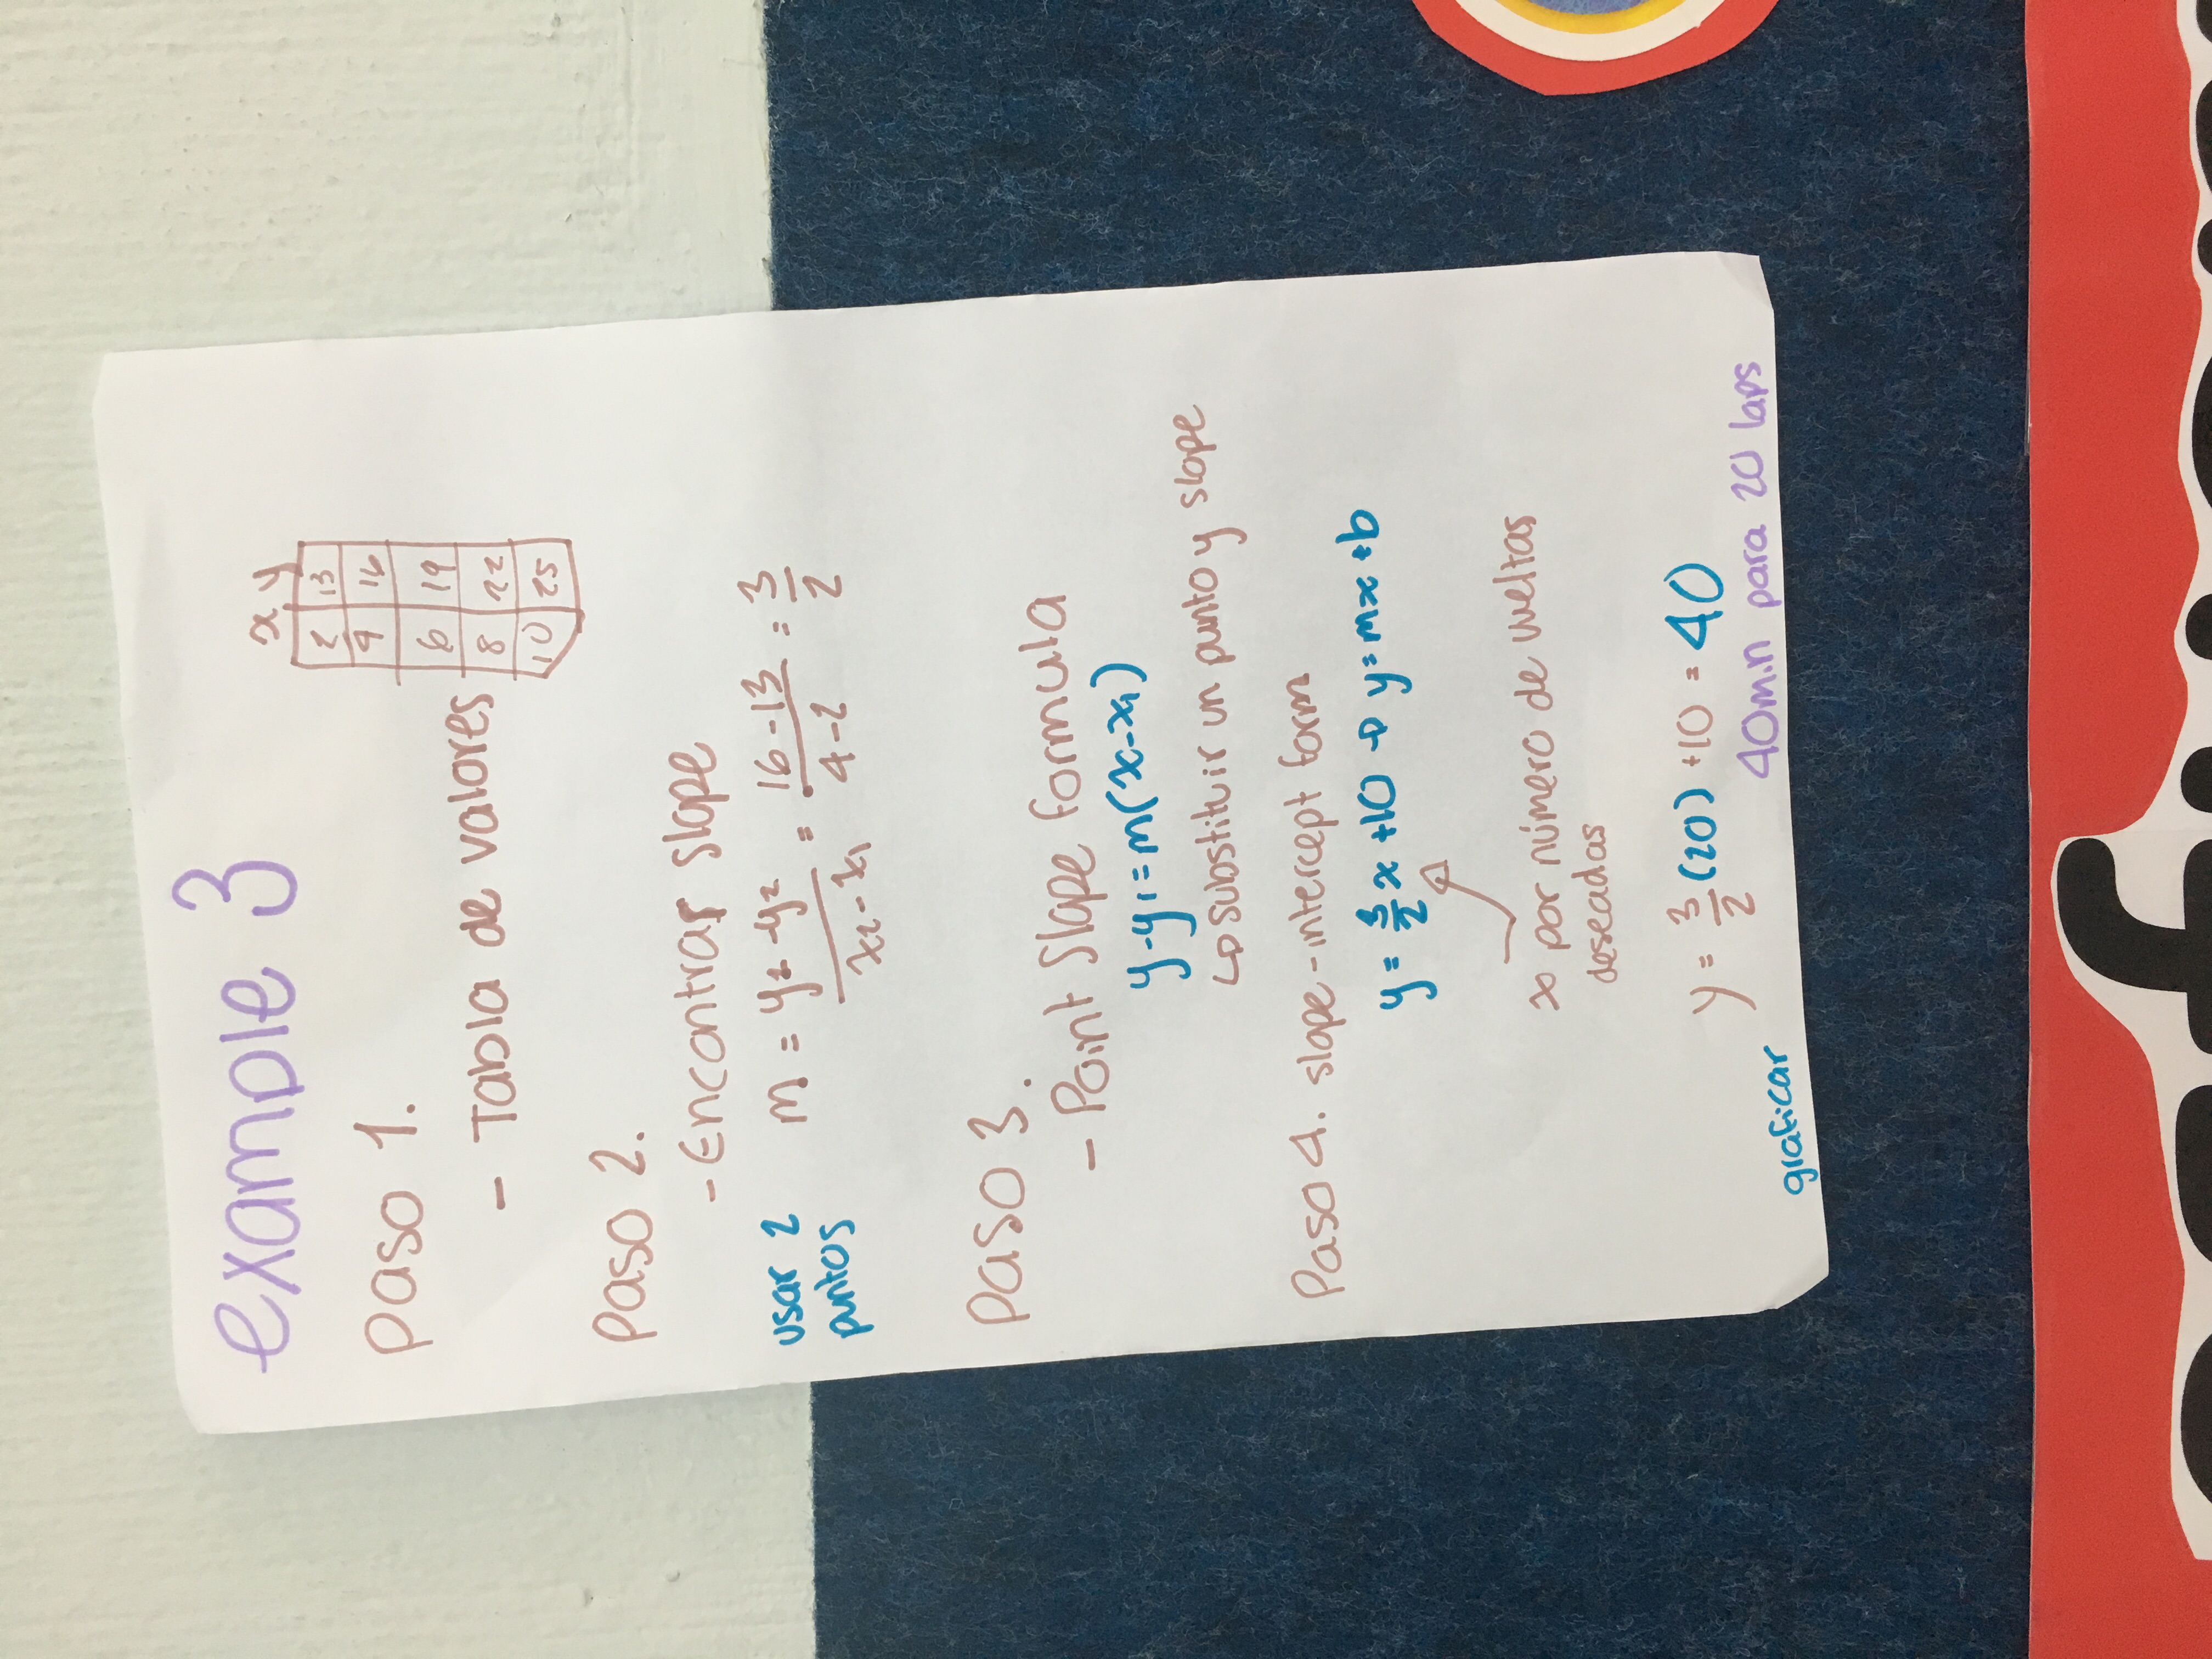 example 3
x y
2 13
4 16
6 19
8 22
10 25
Paso 1.
- Tabla de valores
Paso 2.
- Encontrar Slope
usar 2 puntos
m = y₂ - y₂ / x₂ - x₁ = 16 - 13 / 4 - 2 = 3/2
Paso 3.
- Point Slope formula
y - y₁ = m(x - x₁)
↳ substituir un punto y slope
Paso 4. slope-intercept form
y = 3/2 x + 10 → y = mx + b
x por número de vueltas
deseadas
y = 3/2 (20) + 10 = 40
40min para 20 laps
graficar